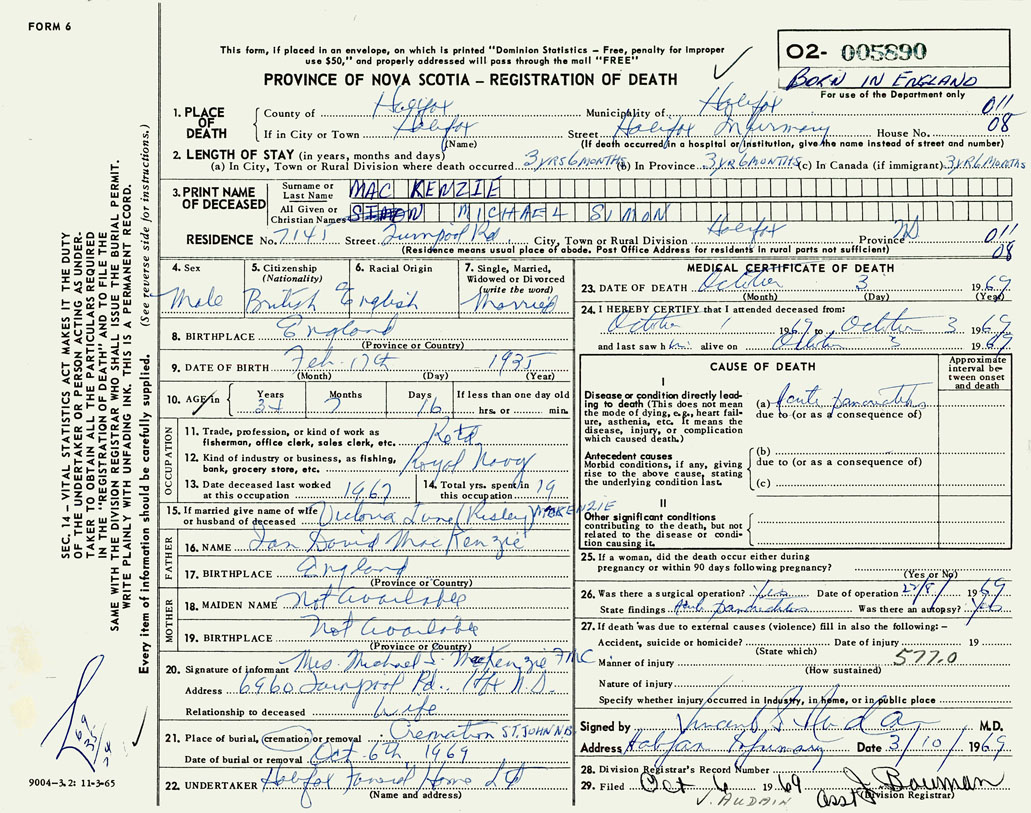 FORM 6
This form, if placed in an envelope, on which is printed "Dominion Statistics – Free, penalty for improper
use $50," and properly addressed will pass through the mail "FREE"
PROVINCE OF NOVA SCOTIA – REGISTRATION OF DEATH
02- 005890
BORN IN ENGLAND
For use of the Department only
1. PLACE OF DEATH
County of Halifax Municipality of Halifax 011
If in City or Town Halifax Street Halifax Infirmary House No. 08
(Name) (If death occurred in a hospital or institution, give the name instead of street and number)
2. LENGTH OF STAY (in years, months and days)
(a) In City, Town or Rural Division where death occurred 3 YRS 6 MONTHS (b) In Province 3 YR 6 MONTHS (c) In Canada (if immigrant) 3 YR 6 MONTHS
3. PRINT NAME OF DECEASED
Surname or Last Name MAC KENZIE
All Given or Christian Names SIMON MICHAEL SIMON
RESIDENCE No. 7141 Street Rd. City, Town or Rural Division Halifax Province NS 011
(Residence means usual place of abode. Post Office Address for residents in rural parts not sufficient) 08
4. Sex Male
5. Citizenship (Nationality) British
6. Racial Origin English
7. Single, Married, Widowed or Divorced (write the word) Married
8. BIRTHPLACE England
(Province or Country)
9. DATE OF BIRTH Feb. 17th 1935
(Month) (Day) (Year)
10. AGE in Years 34 Months 7 Days 16 If less than one day old hrs. or min.
OCCUPATION
11. Trade, profession, or kind of work as fisherman, office clerk, sales clerk, etc. Retd
12. Kind of industry or business, as fishing, bank, grocery store, etc. Royal Navy
13. Date deceased last worked at this occupation 1967
14. Total yrs. spent in this occupation 19
15. If married give name of wife or husband of deceased Victoria June (Risley) MACKENZIE
FATHER
16. NAME Ian David MacKenzie
17. BIRTHPLACE England
(Province or Country)
MOTHER
18. MAIDEN NAME Not Available
19. BIRTHPLACE Not Available
(Province or Country)
20. Signature of informant Mrs. Michael S. MacKenzie FMC
Address 6960 Rd. Hfx N.S.
Relationship to deceased Wife
21. Place of burial, cremation or removal Cremation ST. JOHN N.B
Date of burial or removal Oct 6th 1969
22. UNDERTAKER Halifax Funeral Home Ltd
(Name and address)
MEDICAL CERTIFICATE OF DEATH
23. DATE OF DEATH October 3 1969
(Month) (Day) (Year)
24. I HEREBY CERTIFY that I attended deceased from:
October 1 1969 to October 3 1969
and last saw him alive on October 3 1969
CAUSE OF DEATH
Approximate interval between onset and death
I
Disease or condition directly leading to death (This does not mean the mode of dying, e.g., heart failure, asthenia, etc. It means the disease, injury, or complication which caused death.)
(a) Acute pancreatitis
due to (or as a consequence of)
Antecedent causes
Morbid conditions, if any, giving rise to the above cause, stating the underlying condition last.
(b)
due to (or as a consequence of)
(c)
II
Other significant conditions
contributing to the death, but not related to the disease or condition causing it.
25. If a woman, did the death occur either during
pregnancy or within 90 days following pregnancy?
(Yes or No)
26. Was there a surgical operation? Yes Date of operation 22/8/ 1969
State findings pancreatitis Was there an autopsy? Yes
27. If death was due to external causes (violence) fill in also the following: –
Accident, suicide or homicide? Date of injury 19
(State which)
Manner of injury 577.0
(How sustained)
Nature of injury
Specify whether injury occurred in Industry, in home, or in public place
Signed by Vincent M.D.
Address Halifax Infirmary Date 3/10/ 1969
28. Division Registrar's Record Number
29. Filed Oct 6 1969 J. Bauman
J. AUDAIN Asst (Division Registrar)
SEC. 14 – VITAL STATISTICS ACT MAKES IT THE DUTY
OF THE UNDERTAKER OR PERSON ACTING AS UNDER-
TAKER TO OBTAIN ALL THE PARTICULARS REQUIRED
IN THE "REGISTRATION OF DEATH" AND TO FILE THE
SAME WITH THE DIVISION REGISTRAR WHO SHALL ISSUE THE BURIAL PERMIT.
WRITE PLAINLY WITH UNFADING INK. THIS IS A PERMANENT RECORD.
Every item of information should be carefully supplied. (See reverse side for instructions.)
9004–3.2: 11-3-65